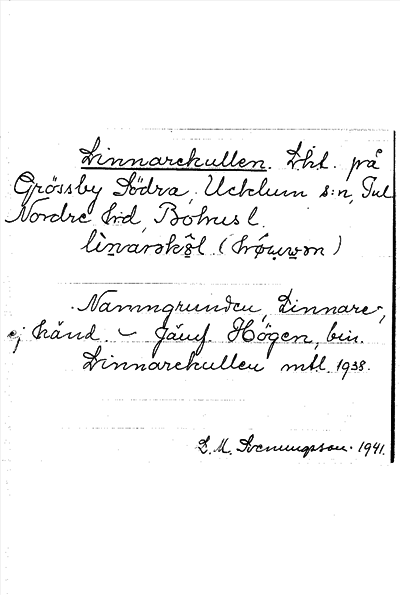 Linnarekullen. Lht. på
Grössby Södra, Ucklum s:n, Inl.
Nordre hrd, Bohusl.
lìnarəkl̥ (hǿɯwən)
Namngrunden, Linnare-,
ej känd. – Jämf. Högen, bin.
Linnarekullen mtl. 1938.
L. M. Svenungsson. 1941.